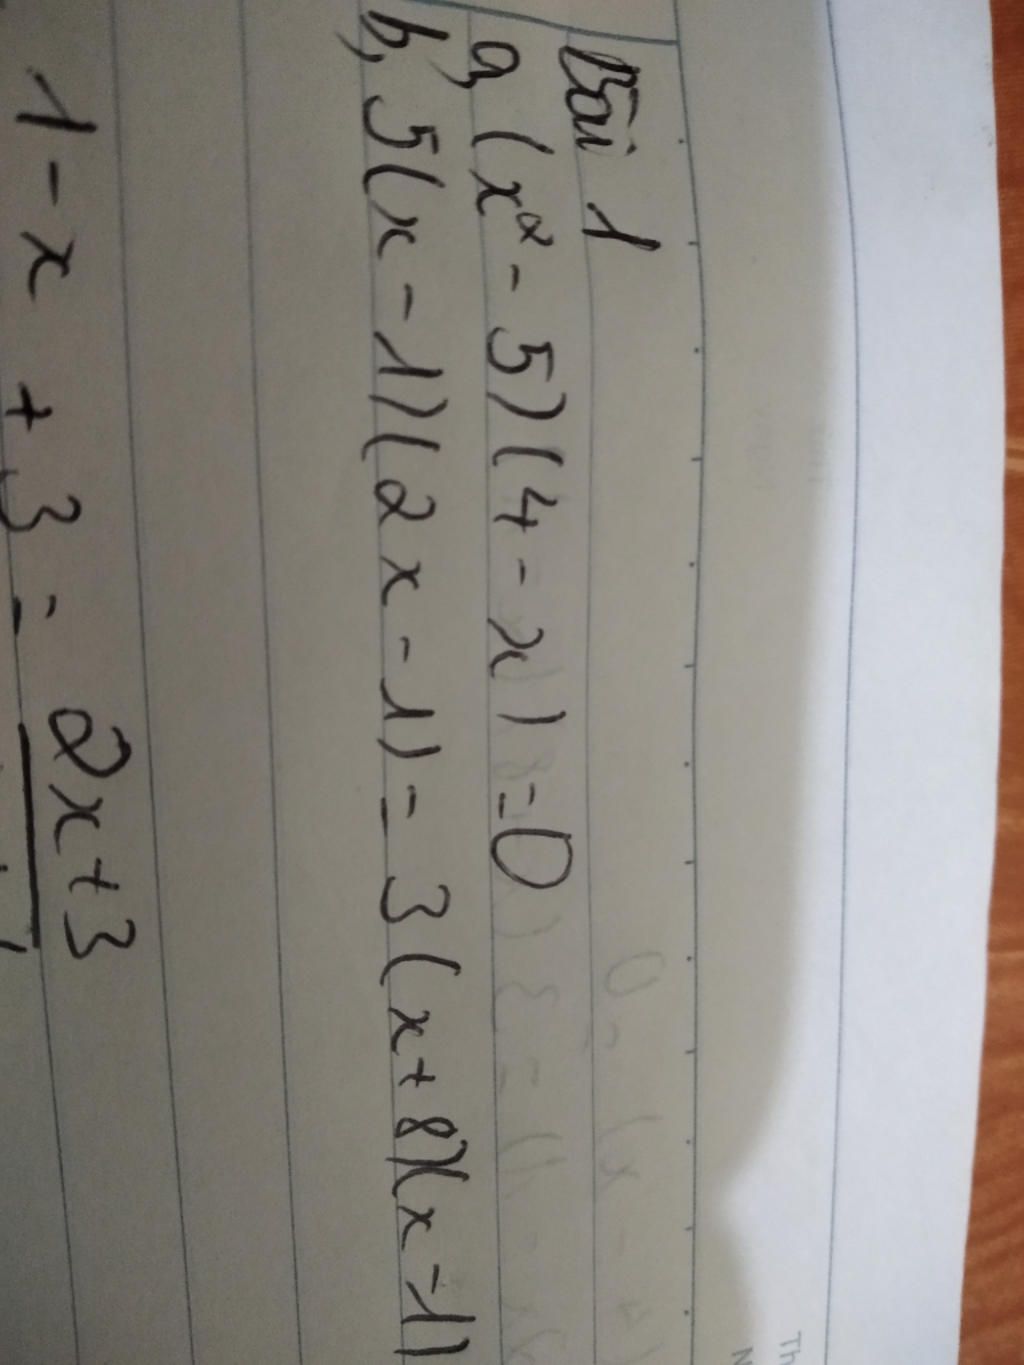 Bài 1
a, (x² - 5)(4 - x) = 0
b, 5(x - 1)(2x - 1) = 3(x + 8)(x - 1)
2x + 3
1 - x + 3 =